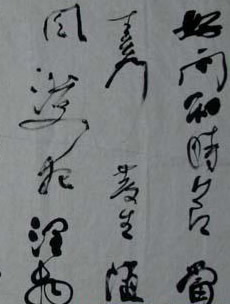 好雨知時節當
春乃發生隨
風潛入夜潤物